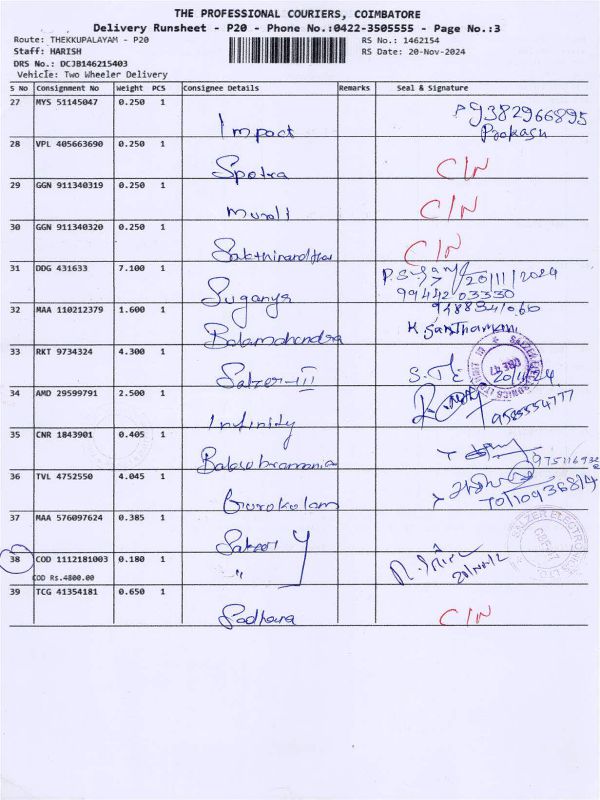 THE PROFESSIONAL COURIERS, COIMBATORE
Delivery Runsheet - P20 - Phone No.:0422-3505555 - Page No.:3
Route: THEKKUPALAYAM - P20 RS No.: 1462154
Staff: HARISH RS Date: 20-Nov-2024
DRS No.: DCJB146215403
Vehicle: Two Wheeler Delivery
S No Consignment No Weight PCS Consignee Details Remarks Seal & Signature
27 MYS 51145047 0.250 1 Impact P 9382966895
Prakash
28 VPL 405663690 0.250 1 Spotra C/N
29 GGN 911340319 0.250 1 Murali C/N
30 GGN 911340320 0.250 1 C/N
31 DDG 431633 7.100 1 Suganya 20/11/2024
9944203330
32 MAA 110212379 1.600 1 Balamahendra 9488341060
K Santhamani
33 RKT 9734324 4.300 1 Salzer-III 20/11/24
34 AMD 29599791 2.500 1 Infinity 9585554777
35 CNR 1843901 0.405 1
36 TVL 4752550 4.045 1 7010936814
37 MAA 576097624 0.385 1
SALZER ELECTRONICS LTD
38 COD 1112181003 0.180 1 "
COD Rs.4800.00
39 TCG 41354181 0.650 1 Sadhana C/N